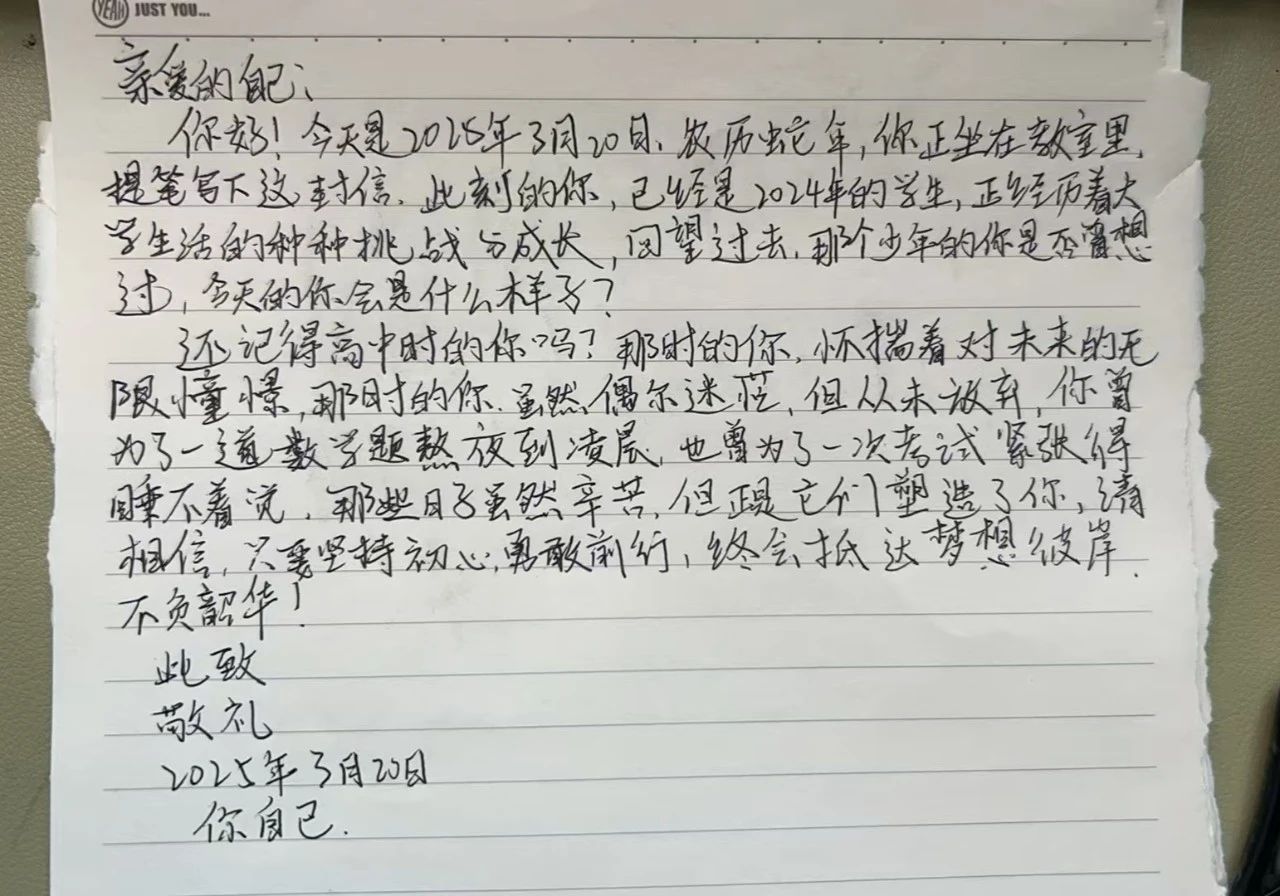 YEAH JUST YOU...
亲爱的自己:
你好!今天是2025年3月20日、农历蛇年,你正坐在教室里,
提笔写下这封信.此刻的你,已经是2024年的学生,正经历着大
学生活的种种挑战与成长,回望过去,那个少年的你是否曾想
过,今天的你会是什么样子?
还记得高中时的你吗?那时的你,怀揣着对未来的无
限憧憬,那时的你.虽然偶尔迷茫,但从未放弃,你曾
为了一道数学题熬夜到凌晨,也曾为了一次考试紧张得
睡不着觉.那些日子虽然辛苦,但正是它们塑造了你,请
相信,只要坚持初心,勇敢前行,终会抵达梦想彼岸.
不负韶华!
此致
敬礼
2025年3月20日
你自己.